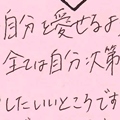 自分を愛せるよ
全ては自分次第
したいいところです